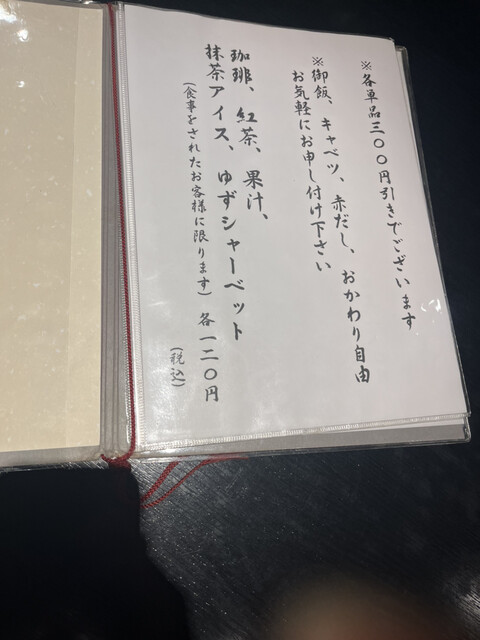 ※各単品三〇〇円引きでございます
※御飯、キャベツ、赤だし、おかわり自由
お気軽にお申し付け下さい
珈琲、紅茶、果汁、
抹茶アイス、ゆずシャーベット
(食事をされたお客様に限ります) 各一二〇円
(税込)